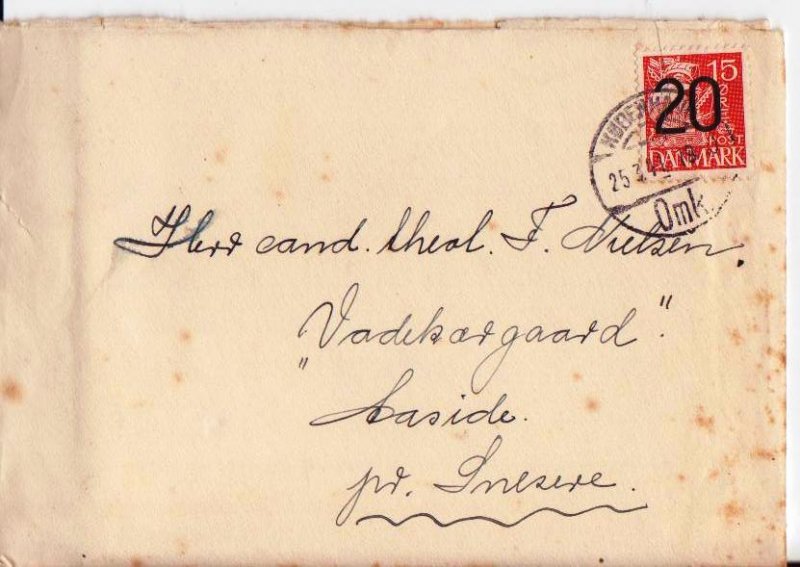 15
ØRE
20
POST
DANMARK
KØBENHAVN
25.3.4
Omk
Herr cand. theol. F. Nielsen.
"Vadekærgaard".
Aaside.
pr. Snesere.